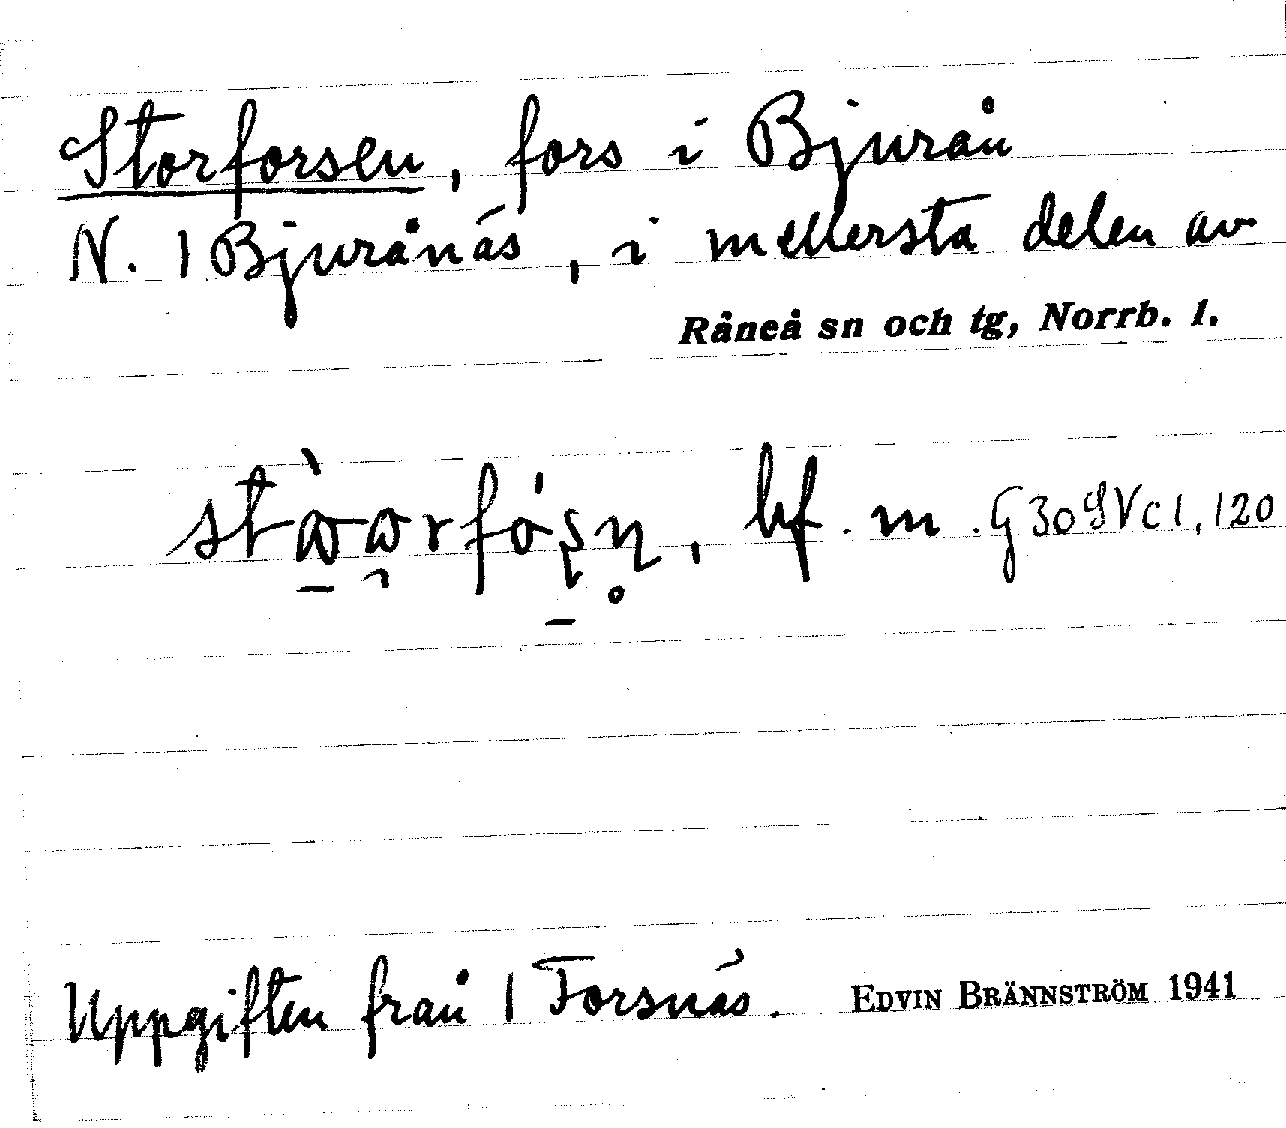 Storforsen, fors i Bjurån
N. 1 Bjurånäs, i mellersta delen av
Råneå sn och tg, Norrb. l.
bf. m. G 30 SV c 1, 120
Uppgiften från 1 Forsnäs. EDVIN BRÄNNSTRÖM 1941